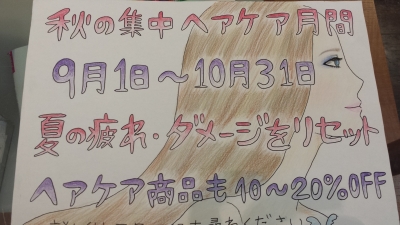 秋の集中ヘアケア月間
9月1日〜10月31日
夏の疲れ・ダメージをリセット
ヘアケア商品も10〜20%OFF
ください